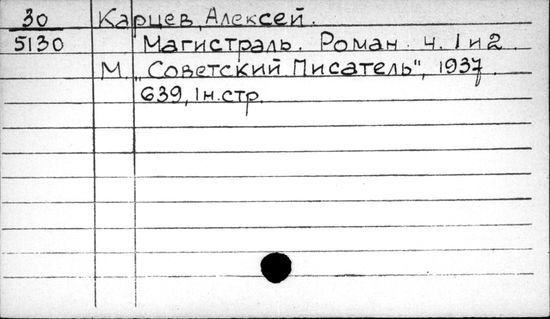 30 Карцев, Алексей.
5130 Магистраль. Роман. ч. 1 и 2.
М. "Советский Писатель", 1937.
639, 1н.стр.